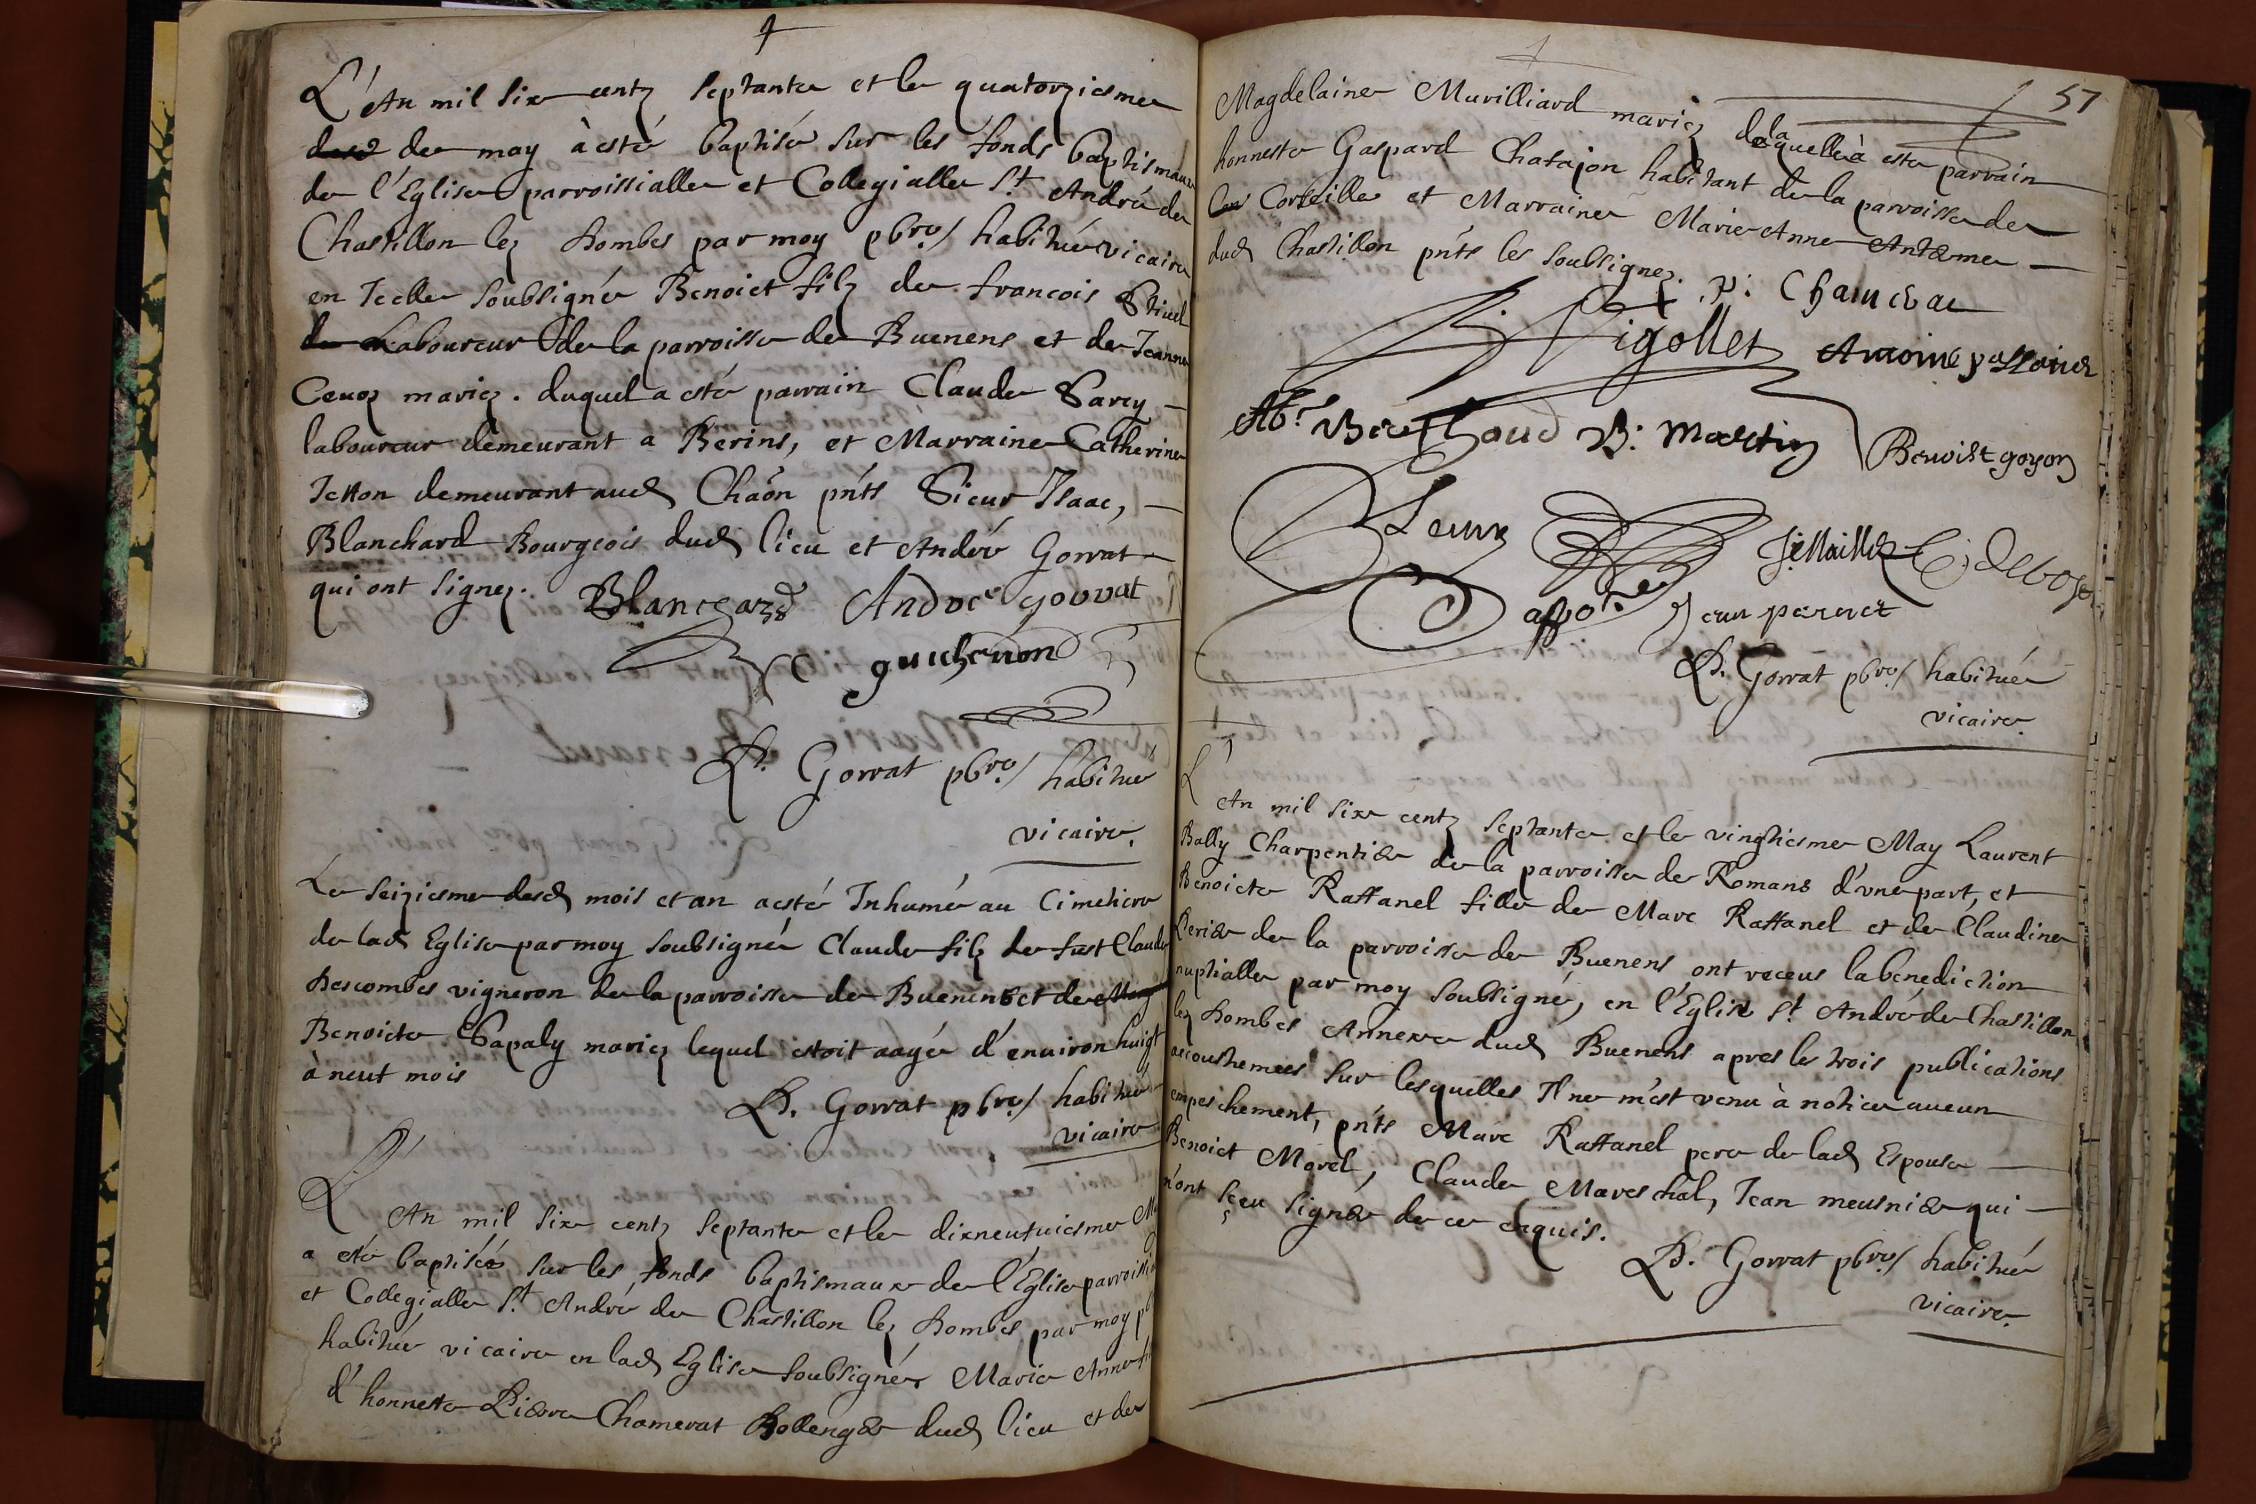 L'An mil six centz septante et le quatorziesme
de may à esté baptisé sur les fonds baptismaux
de l'Eglise parroissialle et Collegialle St André de
Chastillon lez Dombes par moy pbre/ habitué vicaire
en Icelle soubsigné Benoict filz de francois
Laboureur de la parroisse de Buenens et de Jeanne
mariez. duquel a esté parrain Claude Sarcy
laboureur demeurant a Berins, et Marraine Catherine
demeurant aud Chaon pnts Sieur Isaac,
Blanchard Bourgeois dud lieu et André Gorrat
qui ont signez. Blanchard André gorrat
guichenon
D. Gorrat pbre/ habitué
vicaire.
Le seiziesme desd mois et an a esté Inhumé au Cimetiere
de lad Eglise par moy soubsigné Claude filz de fust Claude
Descombes vigneron de la parroisse de Buenens et de
Benoicte Sapaly mariez lequel estoit aagé d'environ huigt
à neuf mois
D. Gorrat pbre/ habitué
vicaire
L'An mil six centz septante et le dixneufuiesme
a esté baptiseé sur les fonds baptismaux de l'Eglise
et Collegialle St André de Chastillon lez Dombes par moy
habitué vicaire en lad Eglise soubsigné Marie Anne
d'honneste Pierre Chamerat Bollenger dud lieu et de
57
Magdelaine Murilliard mariez de laquelle à esté parrain
honneste Gaspard Chatajon habitant de la parroisse de
Corbeille et Marraine Marie Anne Antesme
dud Chastillon pnts les soubsignez. P: Chamerac
Rigollet Antoine
Berthoud B: Martin Benoist goyon
C: debost
appore Jean pernet
D. Gorrat pbre/ habitué
vicaire.
L'An mil six centz septante et le vingtiesme May Laurent
Bally Charpentier de la parroisse de Romans d'vne part, et
Benoicte Raffanel fille de Marc Raffanel et de Claudine
Perier de la parroisse de Buenens ont receus la benediction
nuptialle par moy soubsigné, en l'Eglise St André de Chastillon
lez Dombes Annexe dud Buenens apres les trois publications
accoustumees sur lesquelles Il ne m'est venu à notice aucun
empeschement, pnts Marc Raffanel pere de lad Espouse
Benoict Morel, Claude Mareschal, Jean meusnier qui
n'ont sçeu signer de ce enquis.
D. Gorrat pbre/ habitué
vicaire.